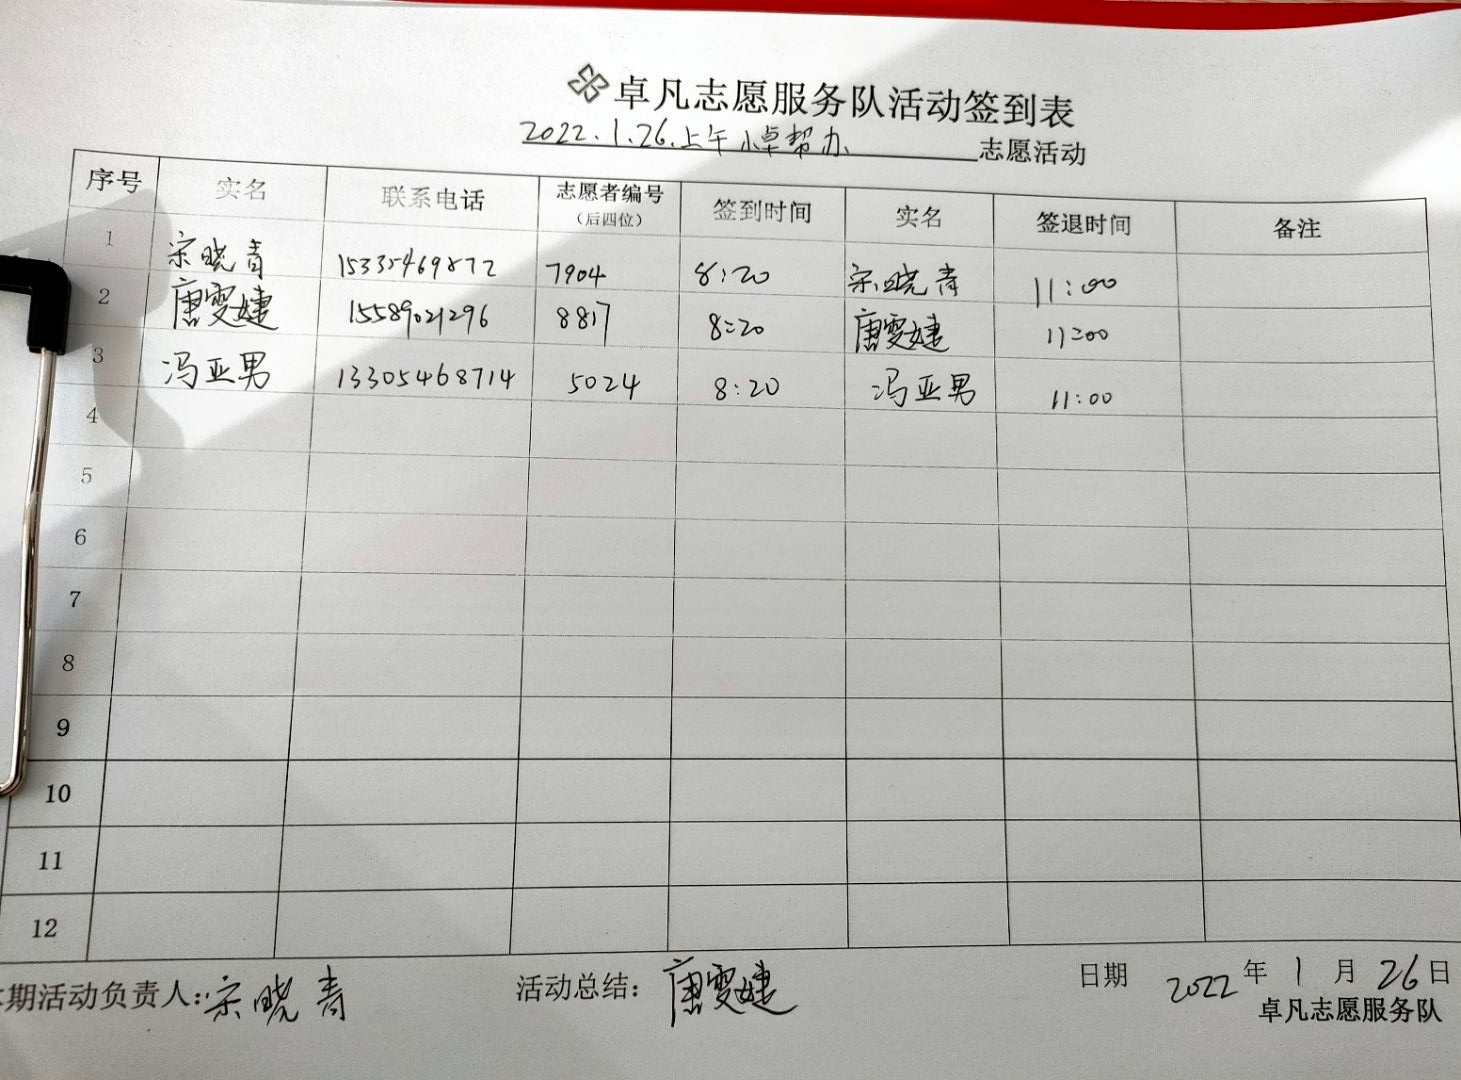 卓凡志愿服务队活动签到表
2022.1.26.上午 小卓帮办 志愿活动
序号 实名 联系电话 志愿者编号（后四位） 签到时间 实名 签退时间 备注
1 宋晓青 15335469872 7904 8:20 宋晓青 11:00
2 唐雯婕 15589021296 8817 8:20 唐雯婕 11:00
3 冯亚男 13305468714 5024 8:20 冯亚男 11:00
4
5
6
7
8
9
10
11
12
期活动负责人:宋晓青 活动总结:唐雯婕 日期 2022年1月26日
卓凡志愿服务队